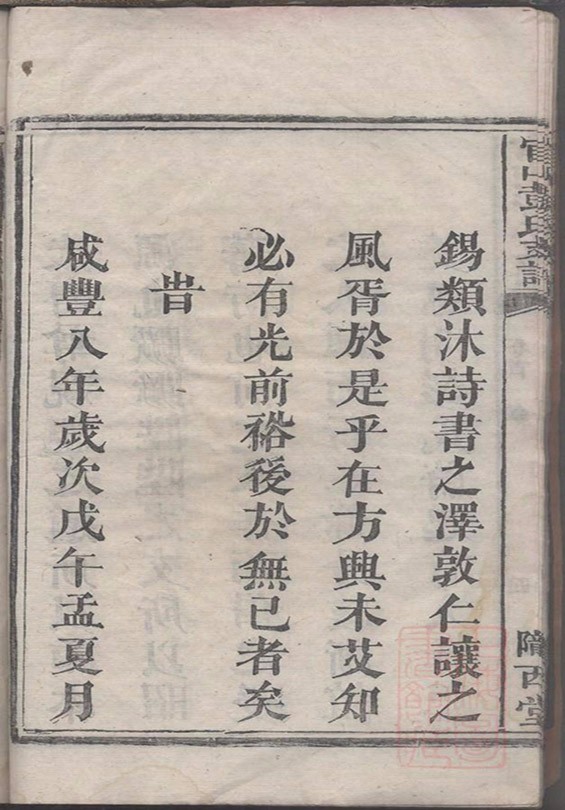 官山彭氏支譜
隴西堂
錫類沐詩書之澤敦仁讓之
風胥於是乎在方興未艾知
必有光前裕後於無已者矣
旹
咸豐八年歲次戊午孟夏月